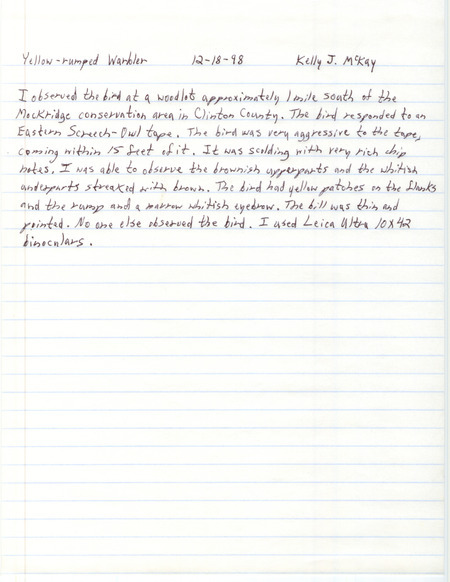 Yellow-rumped Warbler 12-18-98 Kelly J. McKay
I observed the bird at a woodlot approximately 1 mile south of the
Mockridge conservation area in Clinton County. The bird responded to an
Eastern Screech-Owl tape. The bird was very aggressive to the tape,
coming within 15 feet of it. It was scolding with very rich chip
notes. I was able to observe the brownish upperparts and the whitish
underparts streaked with brown. The bird had yellow patches on the flanks
and the rump and a narrow whitish eyebrow. The bill was thin and
pointed. No one else observed the bird. I used Leica Ultra 10X42
binoculars.